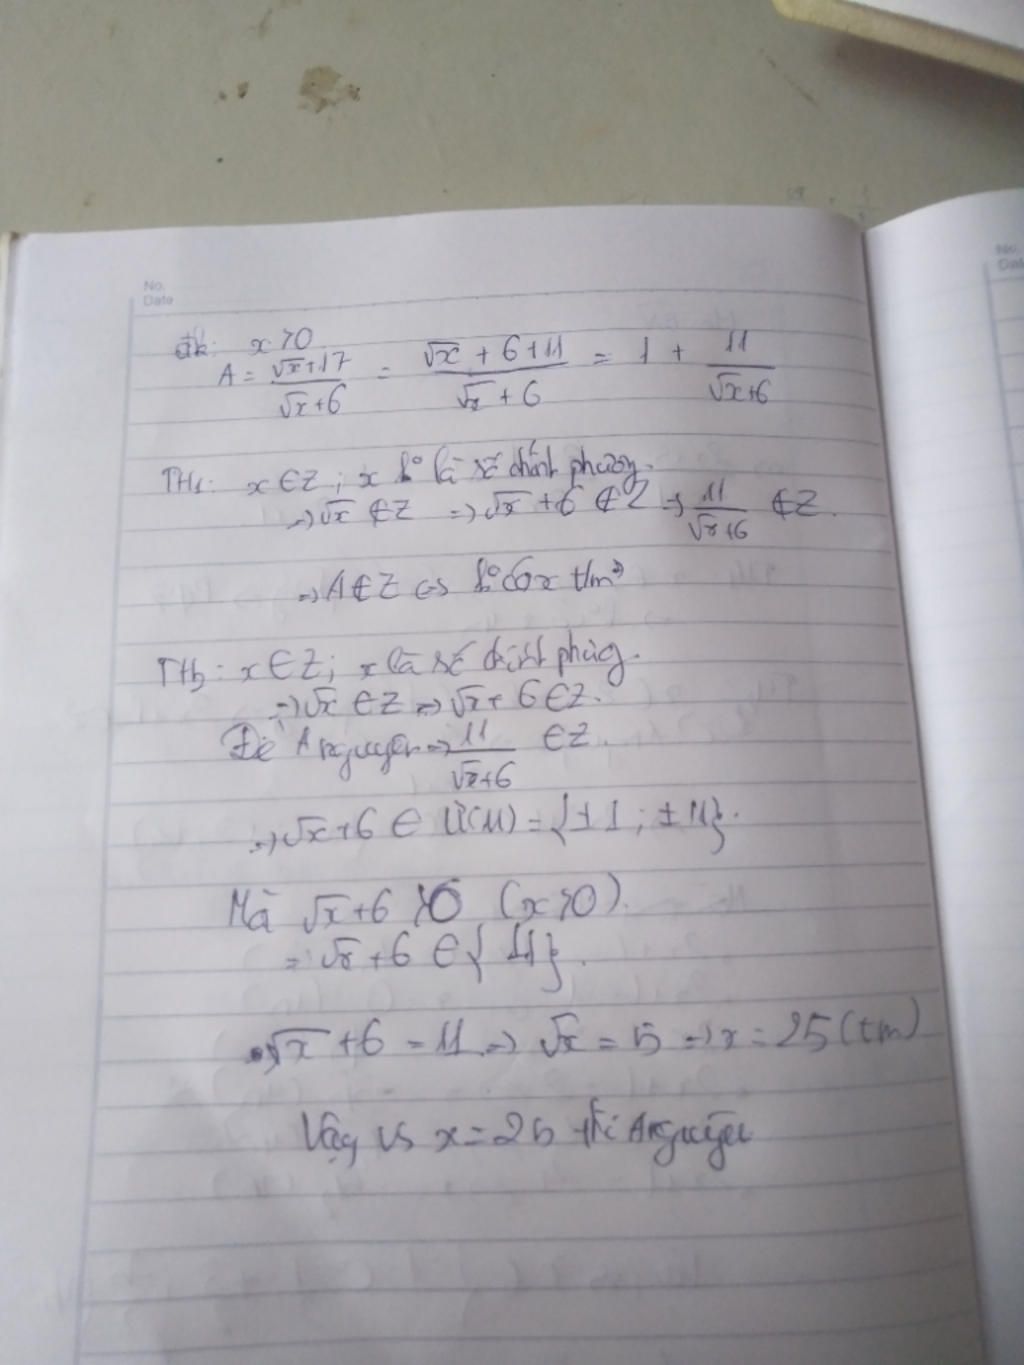 No.
Date
đk: x>0
A = \frac{√x+17}{√x+6} = \frac{√x+6+11}{√x+6} = 1 + \frac{11}{√x+6}
TH1: x∈Z; x ko là số chính phương.
⇒ √x ∉ Z ⇒ √x + 6 ∉ Z ⇒ \frac{11}{√x+6} ∉ Z.
⇒ A ∉ Z ko có x t/m
TH2: x∈Z; x là số chính phương.
⇒ √x ∈ Z ⇒ √x + 6 ∈ Z.
Để A nguyên ⇒ \frac{11}{√x+6} ∈ Z.
⇒ √x+6 ∈ Ư(11) = {±1; ±11}.
Mà √x+6 >6 (x>0).
= √x +6 ∈ {11}.
⇒ √x +6 = 11 ⇒ √x = 5 ⇒ x = 25 (tm)
Vậy vs x = 25 thì A nguyên
No.
Dat